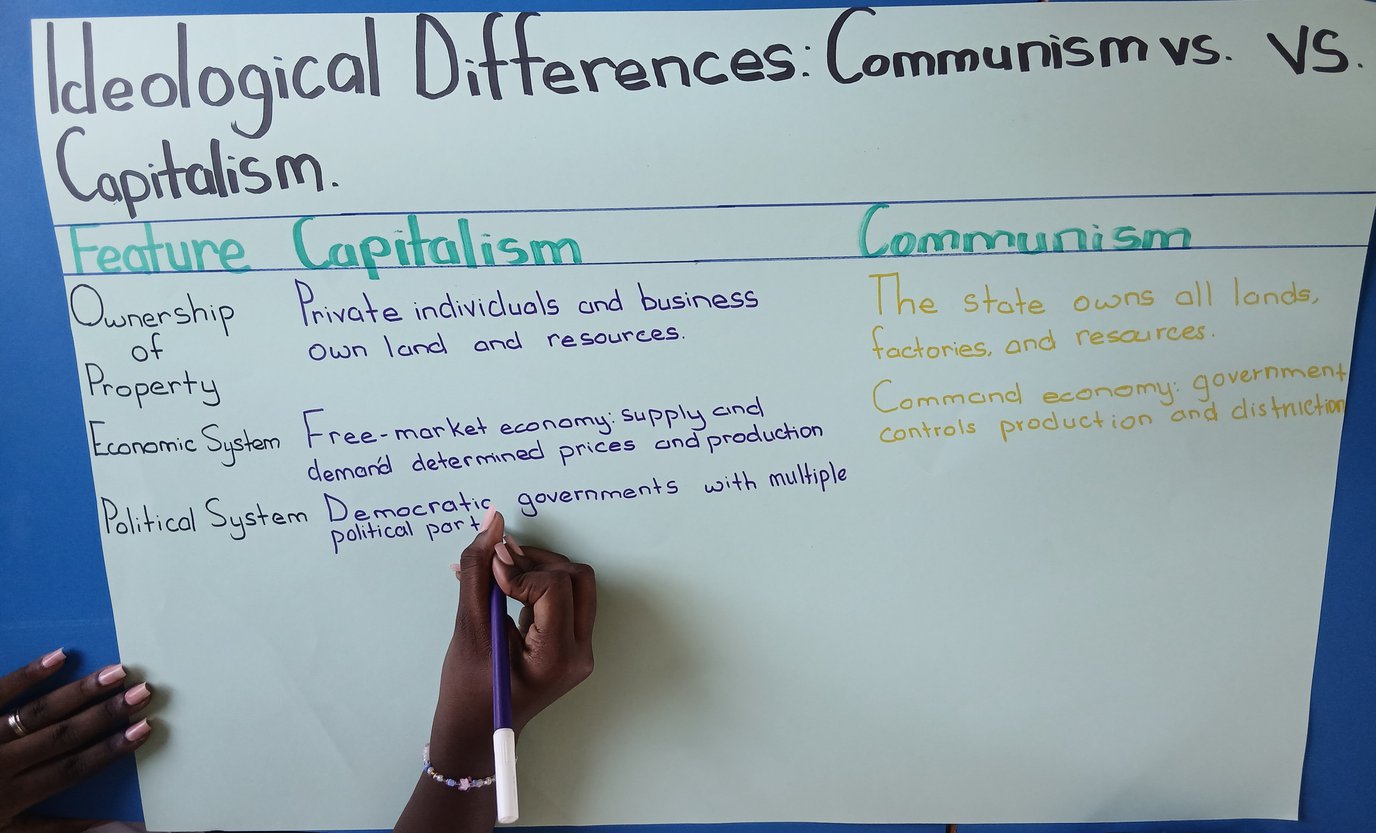 Ideological Differences: Communism vs. VS.
Capitalism.
Feature Capitalism Communism
Ownership
of
Property
Private individuals and business
own land and resources.
The state owns all lands,
factories, and resources.
Economic System
Free-market economy: supply and
demand determined prices and production
Command economy: government
controls production and distriction
Political System
Democratic governments with multiple
political part